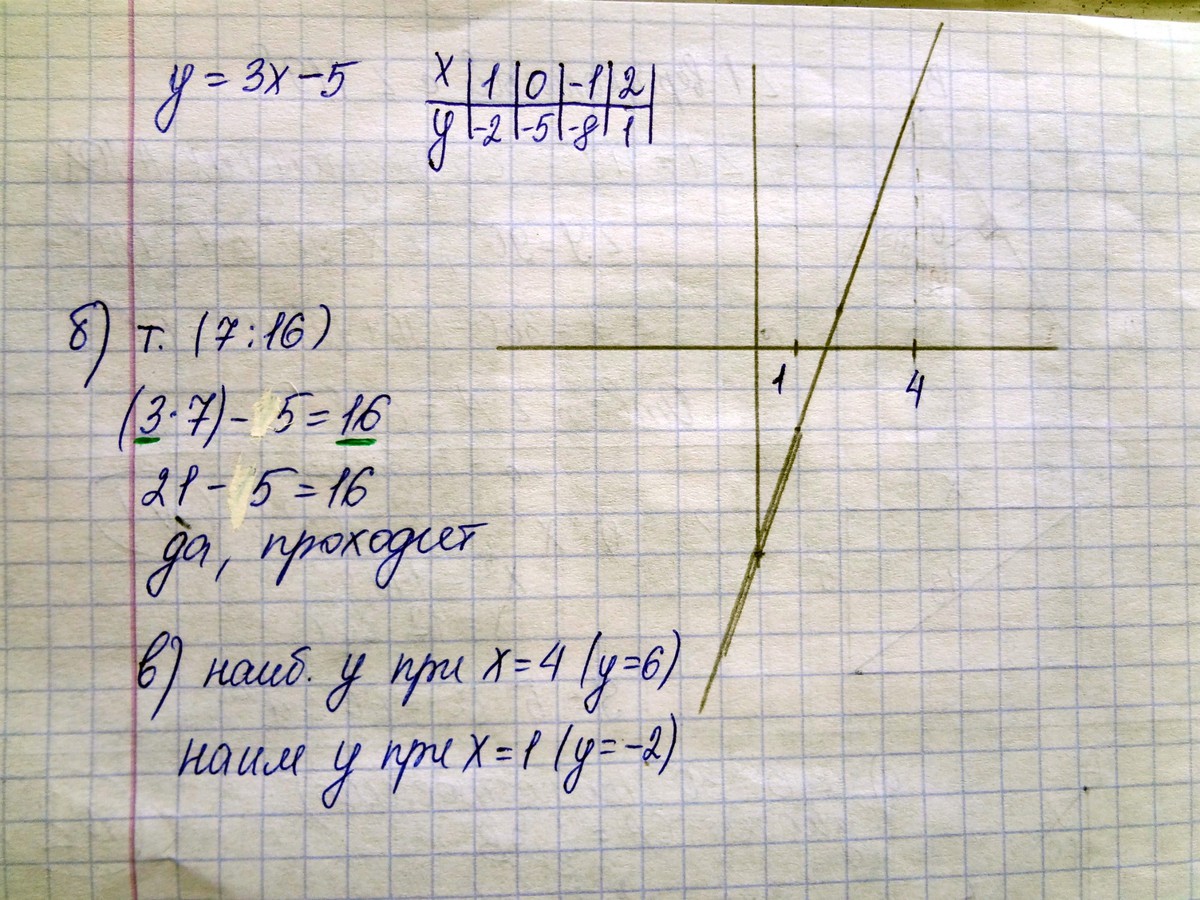 y = 3x - 5
x | 1 | 0 | -1 | 2 |
y | -2 | -5 | -8 | 1 |
1 4
б) т. (7 ; 16)
(3 · 7) - 5 = 16
21 - 5 = 16
да, проходит
в) наиб. y при x = 4 (y = 6)
наим y при x = 1 (y = -2)